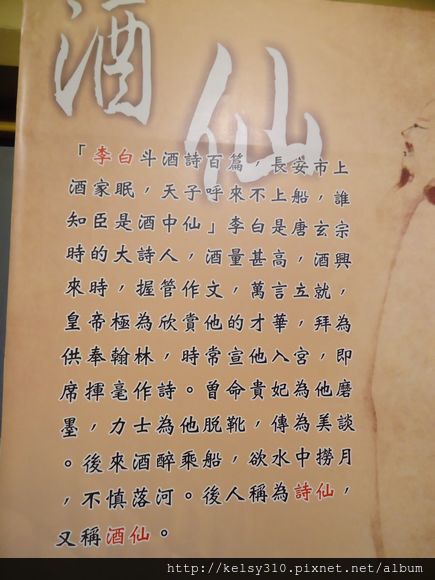 酒仙
「李白斗酒詩百篇，長安市上
酒家眠，天子呼來不上船，誰
知臣是酒中仙」李白是唐玄宗
時的大詩人，酒量甚高，酒興
來時，握管作文，萬言立就，
皇帝極為欣賞他的才華，拜為
供奉翰林，時常宣他入宮，即
席揮毫作詩。曾命貴妃為他磨
墨，力士為他脫靴，傳為美談
。後來酒醉乘船，欲水中撈月
，不慎落河。後人稱為詩仙，
又稱酒仙。
http://kelsy310.pixnet.net/album